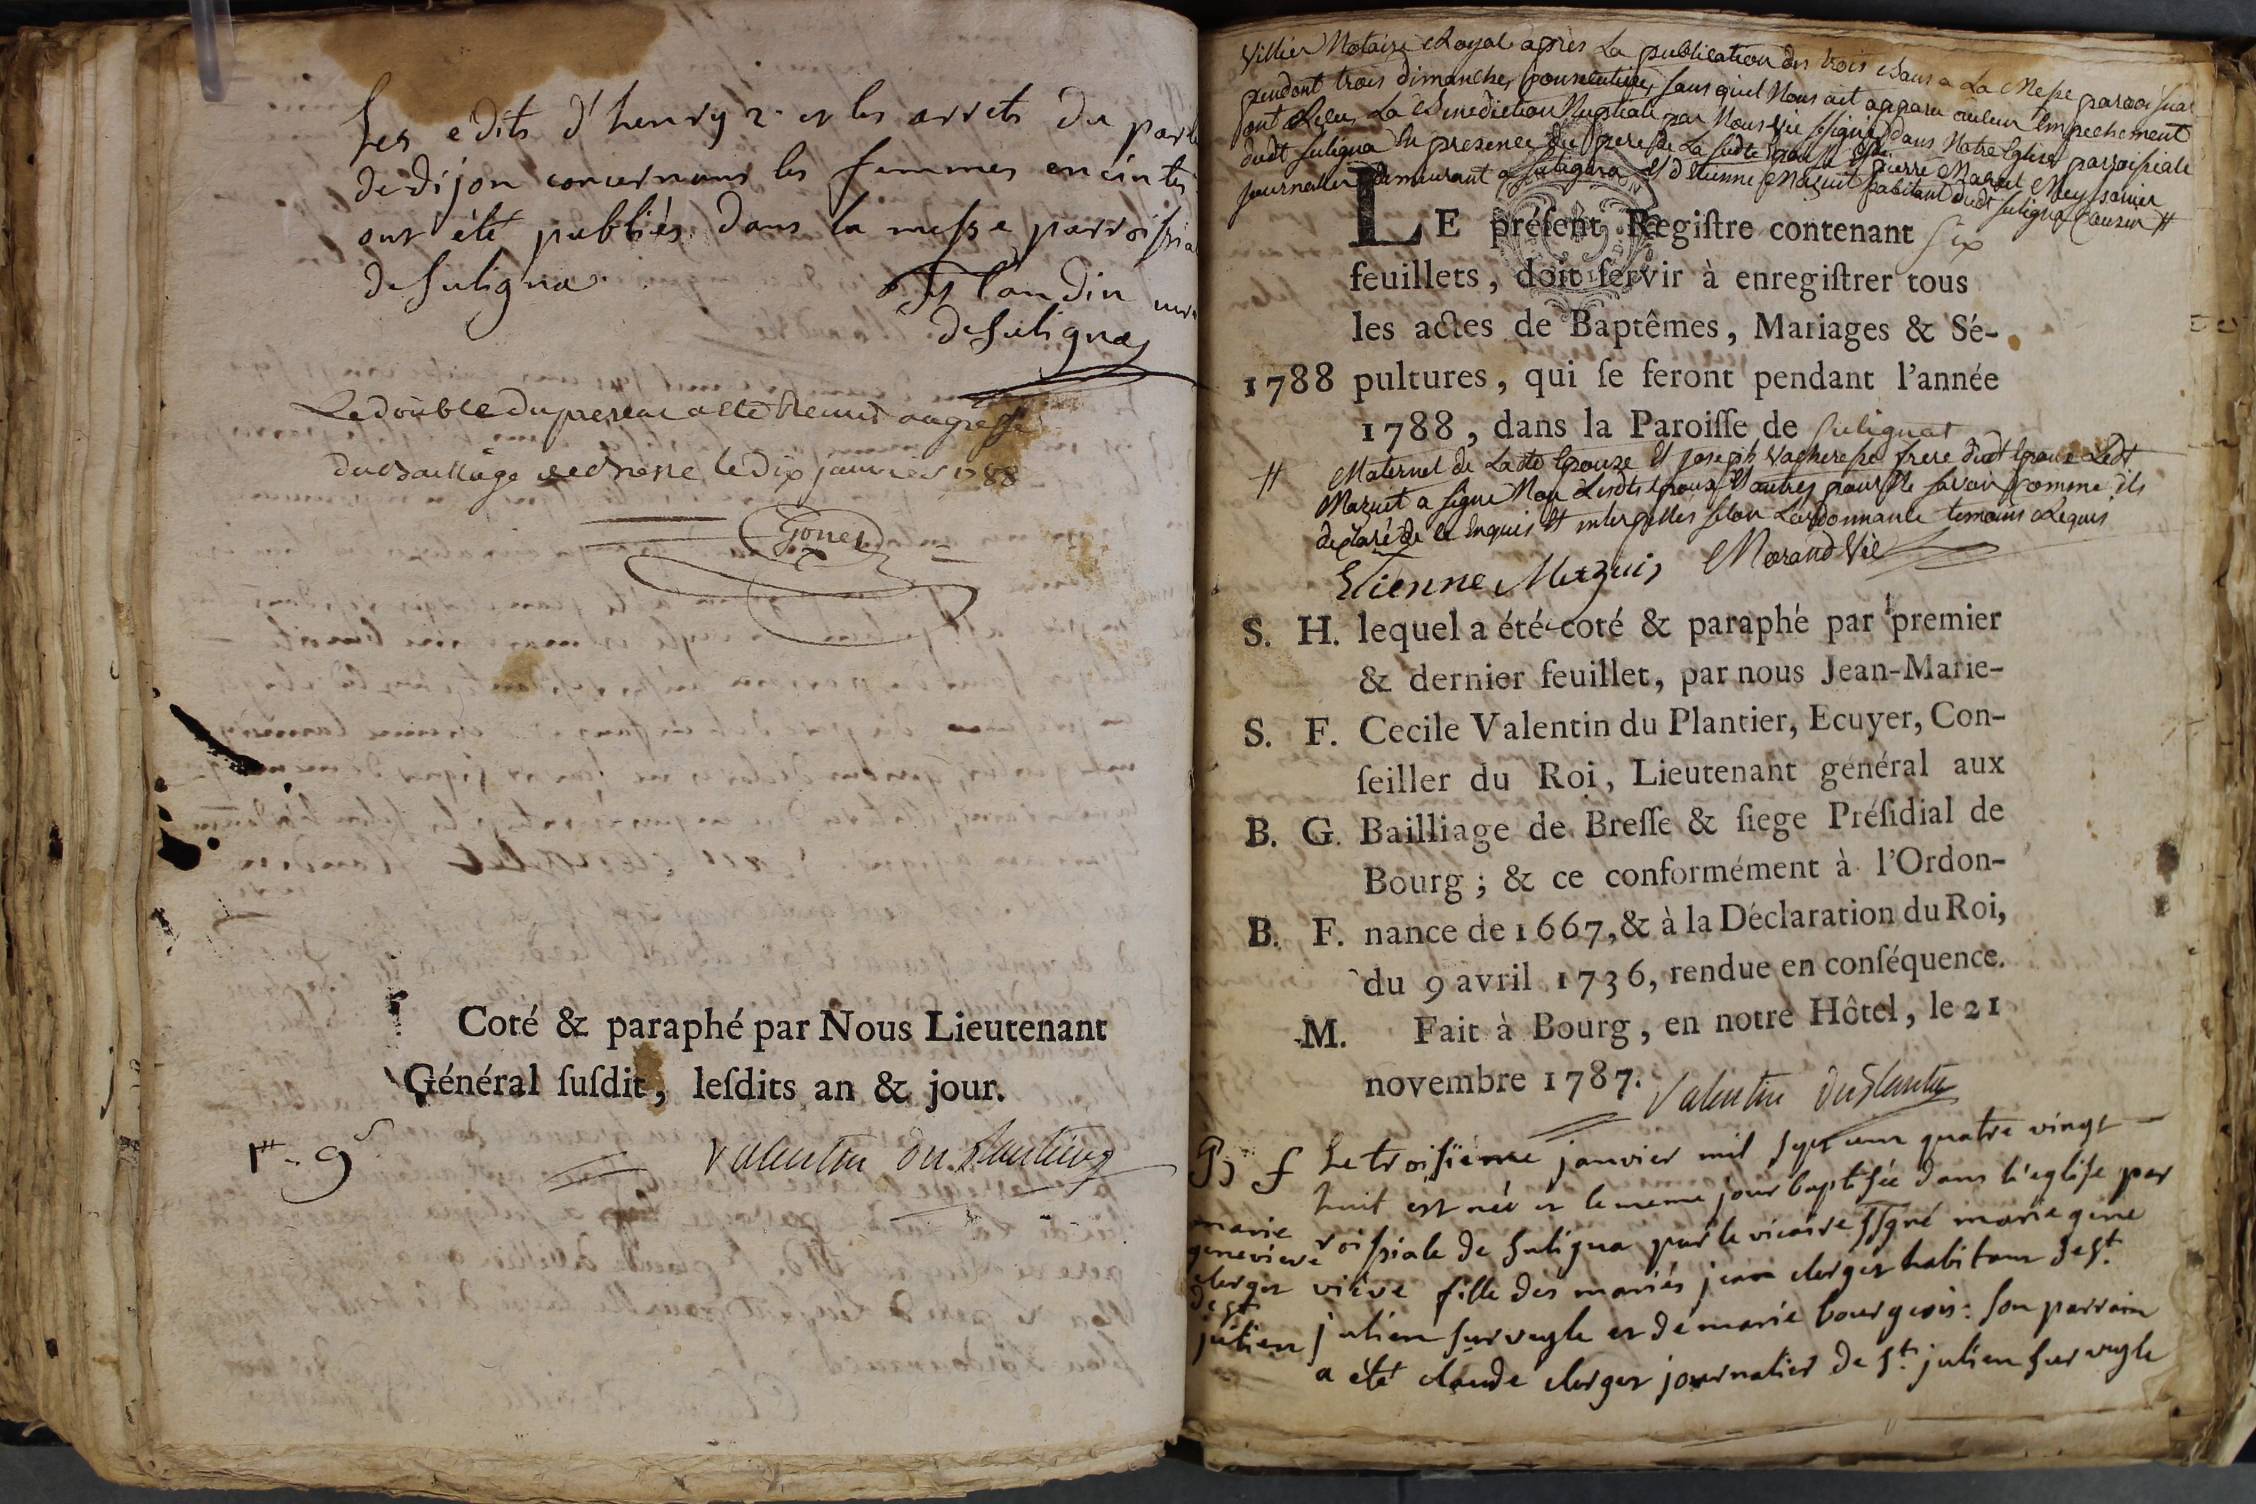 Les edits d'henry 2. et les arrets du parle
de dijon concernant les femmes enceintes
ont été publiés dans la messe parroissia
de Suligna.
Flandin curé
de Suligna
Le double du present a été Remis au greffe
du Bailliage de Bresse le dix janvier 1788
Gonet
Coté & paraphé par Nous Lieutenant
Général ſuſdit, leſdits an & jour.
Valentin du Plantier
Villier Notaire Royal après La publication des trois Bans a La Messe parroissial
pendant trois dimanches consecutifs, sans quil Nous ait apparu aucun Empechement
ont Recu La Benediction Nuptiale par Nous Vic signé dans Notre Eglise parroissiale
dudt Suligna En presence du pere de La sudte Epouse de pierre Mazuit
journalier demeurant a Suligna Et d'Etienne Mazuit habitant dudt Suligna Cousin #
LE préſent Regiſtre contenant six
feuillets, doit ſervir à enregiſtrer tous
les actes de Baptêmes, Mariages & Sé-
1788 pultures, qui ſe feront pendant l'année
1788, dans la Paroiſſe de Sulignat
# Maternel de Ladte Epouze Et joseph Vacheresse frere dudt Epoux Ledt
Mazuit a signé Non Lesdts Epoux Et autres pour ne savoir comme ils
declaré de ce Enquis Et interpellés selon Lordonnance temoins Requis
Etienne Mazuis Morand Vic
S. H. lequel a été coté & paraphé par premier
& dernier feuillet, par nous Jean-Marie-
S. F. Cecile Valentin du Plantier, Ecuyer, Con-
ſeiller du Roi, Lieutenant général aux
B. G. Bailliage de Breſſe & ſiege Préſidial de
Bourg; & ce conformément à l'Ordon-
B. F. nance de 1667, & à la Déclaration du Roi,
du 9 avril 1736, rendue en conſéquence.
M. Fait à Bourg, en notre Hôtel, le 21
novembre 1787. Valentin duPlantier
B f Le troisiéme janvier mil sept cent quatre vingt
huit est née et le meme jour baptisée dans l'eglise par
roissiale de Suligna par le vicaire ssgné marie gene
viève fille des mariés jean clerget habitant de St.
julien sur veyle et de marie bourgeois: son parrain
a été claude clerget journalier de St. julien sur veyle
marie
genevieve
clerget
de St
julien